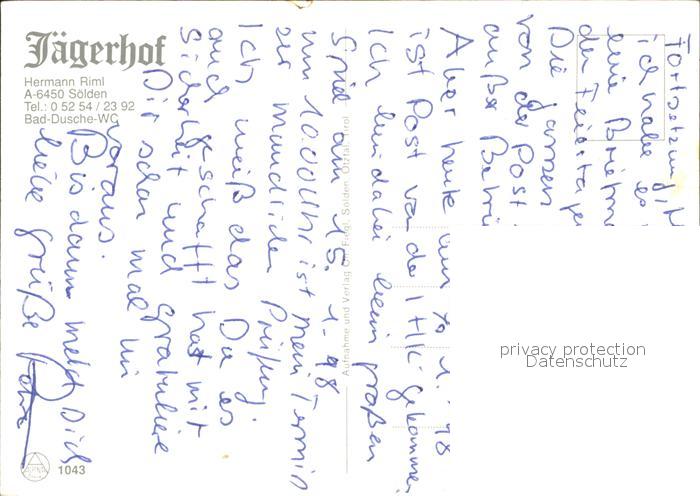 Jägerhof
Hermann Riml
A-6450 Sölden
Tel.: 0 52 54 / 23 92
Bad-Dusche-WC
Fortsetzung,
ich habe es
eine
der Feiertage
Die ganzen
von der Post
außer
Aber heute am 1. 98
ist Post von der IHK gekommen
Ich bin dabei beim
Sind am 15. 1. 98
um 10.00 Uhr ist mein Termin
zur mündlichen Prüfung.
Ich weiß das Du es
auch geschafft hast mit
Sicherheit und gratuliere
Dir schon mal im
voraus.
Bis dann meld Dich
liebe Grüße
Aufnahme und Verlag Sölden, Ötztal, Tirol
1043
privacy protection
Datenschutz